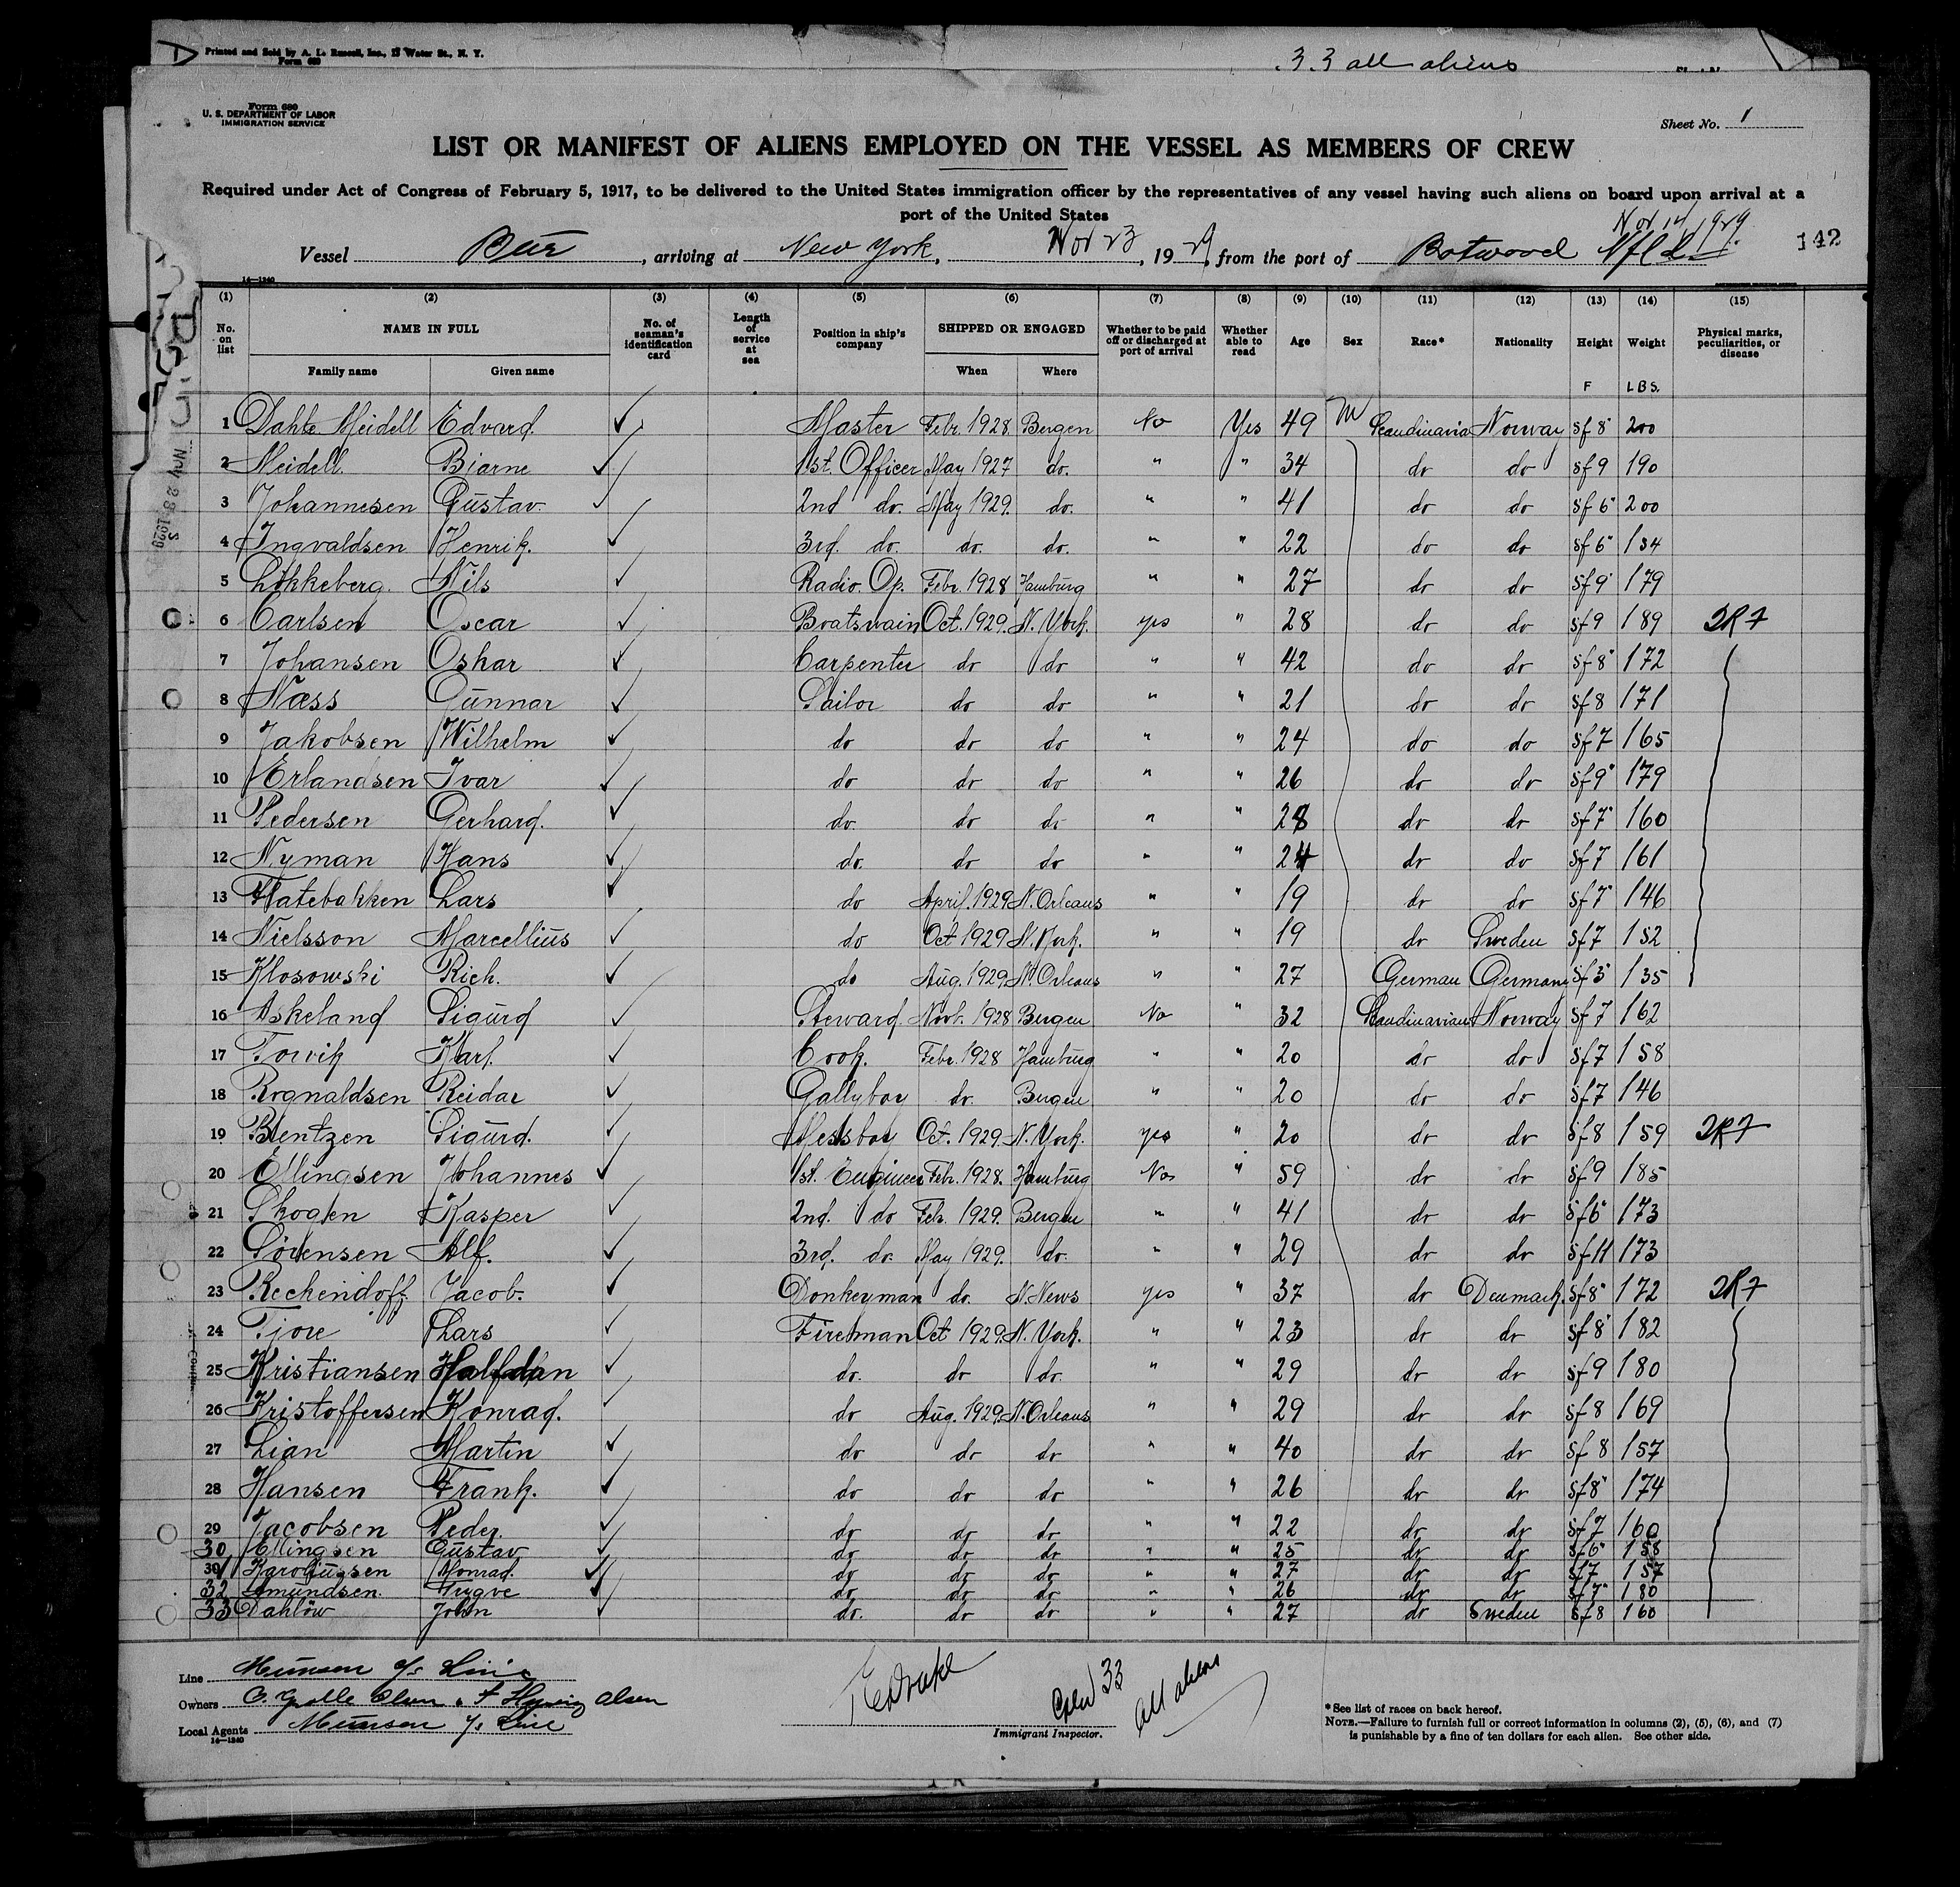 Printed and Sold by A. L. Russell, Inc., 15 Water St., N. Y.
Form 680
33 all aliens
Form 680
U. S. DEPARTMENT OF LABOR
IMMIGRATION SERVICE
Sheet No. 1
LIST OR MANIFEST OF ALIENS EMPLOYED ON THE VESSEL AS MEMBERS OF CREW
Required under Act of Congress of February 5, 1917, to be delivered to the United States immigration officer by the representatives of any vessel having such aliens on board upon arrival at a
port of the United States
Nov 14, 1929.
Vessel Bur, arriving at New York, Nov 23, 1929, from the port of Botwood Nfld 142
14—1240
(1) (2) (3) (4) (5) (6) (7) (8) (9) (10) (11) (12) (13) (14) (15)
No. on list NAME IN FULL No. of seaman's identification card Length of service at sea Position in ship's company SHIPPED OR ENGAGED Whether to be paid off or discharged at port of arrival Whether able to read Age Sex Race* Nationality Height Weight Physical marks, peculiarities, or disease
Family name Given name When Where F LBS.
1 Dahle Meidell Edvard. ✓ Master Febr. 1928. Bergen No Yes 49 M Scandinavia Norway 5f 8" 200
2 Meidell Biarne ✓ 1st. Officer May 1927 do. " " 34 do do 5f 9 190
3 Johannesen Gustav. ✓ 2nd do. May 1929. do. " " 41 do do 5f 6" 200
4 Ingvaldsen Henrik. ✓ 3rd. do. do. do. " " 22 do do 5f 6" 134
5 Lökkeberg. Nils ✓ Radio. Op. Febr. 1928 Hamburg " " 27 do do 5f 9" 179
6 Carlsen Oscar ✓ Boatswain Oct. 1929. N. York. yes " 28 do do 5f 9 189 2R7
7 Johansen Oskar ✓ Carpenter do do " " 42 do do 5f 8" 172
8 Næss Gunnar ✓ Sailor do do " " 21 do do 5f 8 171
9 Jakobsen Wilhelm ✓ do do do " " 24 do do 5f 7 165
10 Erlandsen Ivar ✓ do do do " " 26 do do 5f 9" 179
11 Pedersen Gerhard. ✓ do. do do " " 28 do do 5f 7" 160
12 Nyman Hans ✓ do. do do " " 24 do do 5f 7 161
13 Flatebakken Lars ✓ do April. 1929 N. Orleans " " 19 do do 5f 7" 146
14 Nielsson Marcellius ✓ do Oct 1929 N. York. " " 19 do Sweden 5f 7 152
15 Klosowski Rich. ✓ do Aug. 1929 N. Orleans " " 27 German Germany 5f 5" 135
16 Askeland Sigurd ✓ Steward. Novb. 1928 Bergen No " 32 Scandinavian Norway 5f 7 162
17 Torvik Karl. ✓ Cook. Febr. 1928 Hamburg " " 20 do do 5f 7 158
18 Rognaldsen Reidar ✓ Gallyboy do. Bergen " " 20 do do 5f 7 146
19 Bentzen Sigurd. ✓ Messboy Oct. 1929. N. York. yes " 20 do do 5f 8 159 2R7
20 Ellingsen Johannes ✓ 1st. Engineer Febr. 1928. Hamburg No " 59 do do 5f 9 185
21 Skoglen Kasper ✓ 2nd. do Feb. 1929. Bergen " " 41 do do 5f 6" 173
22 Sörensen Alf. ✓ 3rd. do. May 1929. do. " " 29 do do 5f 11 173
23 Reckendoff Jacob. ✓ Donkeyman do. N. News yes " 37 do Denmark. 5f 8" 172 2R7
24 Lars ✓ Fireman Oct 1929. N. York. " " 23 do do 5f 8" 182
25 Kristiansen Halfdan ✓ do. do do. " " 29 do do 5f 9 180
26 Kristoffersen Konrad. ✓ do Aug. 1929. N. Orleans " " 29 do do 5f 8 169
27 Lian Martin ✓ do do do " " 40 do do 5f 8 157
28 Hansen Frank. ✓ do do do " " 26 do do 5f 8" 174
29 Jacobsen Peder. ✓ do do do " " 22 do do 5f 7 160
30 Ellingsen Gustav ✓ do do do " " 25 do do 5f 6" 158
31 Karoliussen Konrad. ✓ do do do " " 27 do do 5f 7 157
32 Amundsen. Trygve ✓ do do do " " 26 do do 5f 7" 180
33 Dahlöw John ✓ do. do do " " 27 do Sweden 5f 8 160
Line Munson S/S Line
Owners Olsen
Local Agents Munson S/S Line
14—1240
Drake
Immigrant Inspector.
Crew 33
all aliens
*See list of races on back hereof.
NOTE.—Failure to furnish full or correct information in columns (2), (5), (6), and (7)
is punishable by a fine of ten dollars for each alien. See other side.